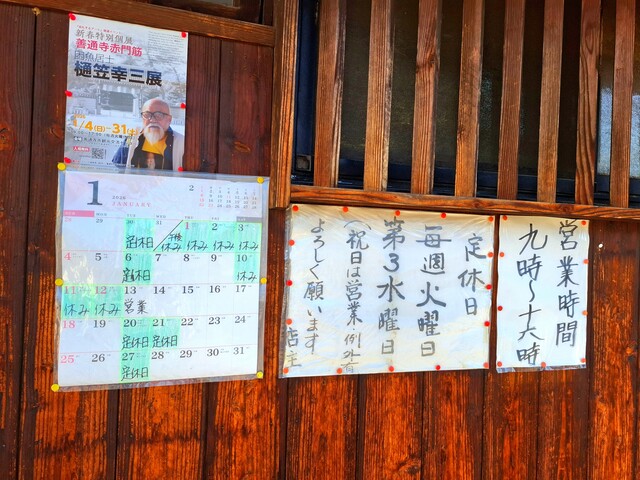 新春特別個展
善通寺赤門筋
樋笠幸三展
1/4(日)-31(土)
1
2026 JANUARY
2
28 29 30 31 1 2 3
定休日 午後休み 休み 休み 休み
4 5 6 7 8 9 10
定休日 休み
11 12 13 14 15 16 17
休み 休み 営業
18 19 20 21 22 23 24
定休日 定休日
25 26 27 28 29 30 31
定休日
定休日
毎週火曜日
第3水曜日
(祝日は営業・例外有
よろしく願います
店主
営業時間
九時〜十六時